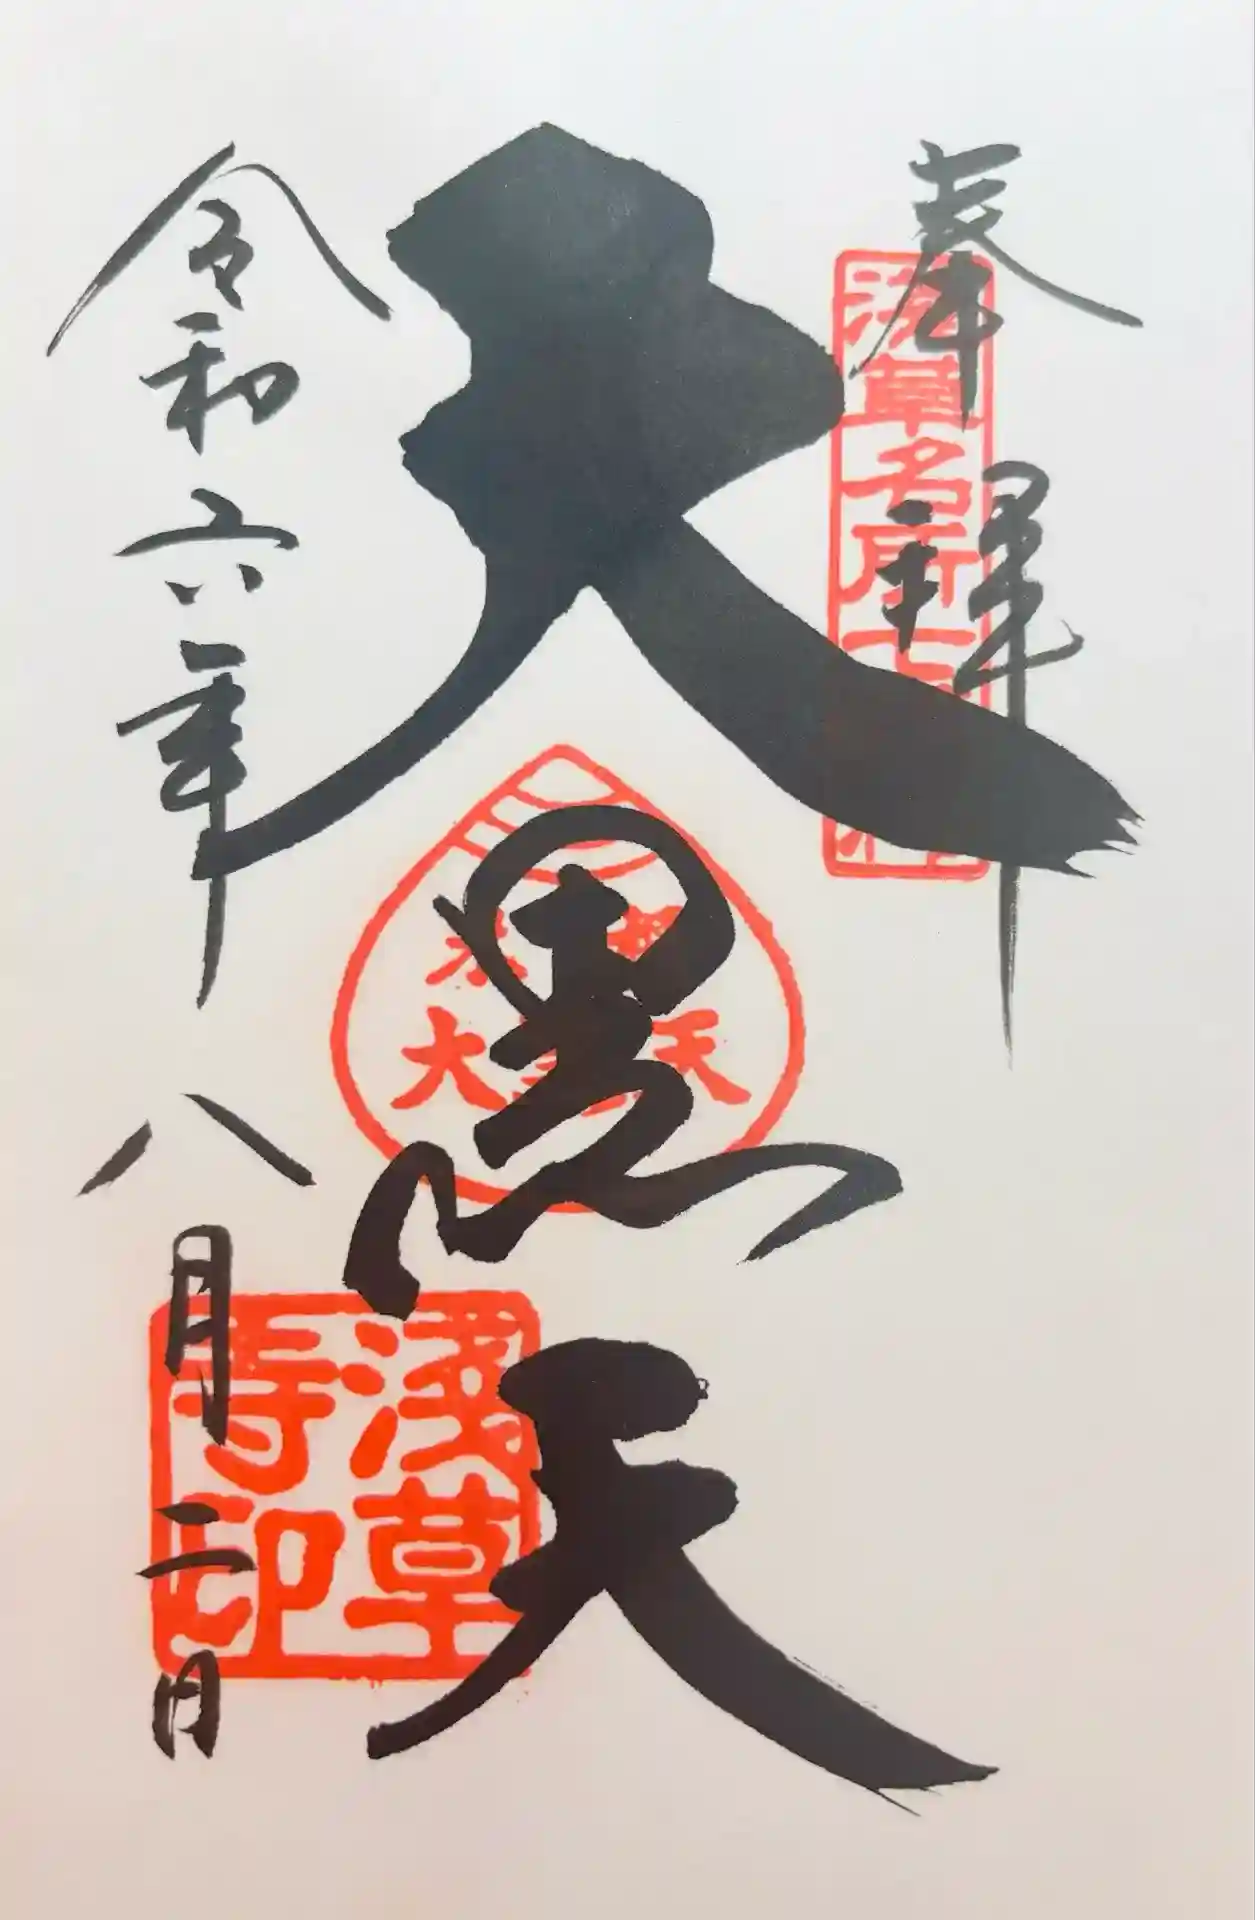 奉拝
浅草名所七
大黒天
米
大黒天
浅草
寺印
令和六年八月二日